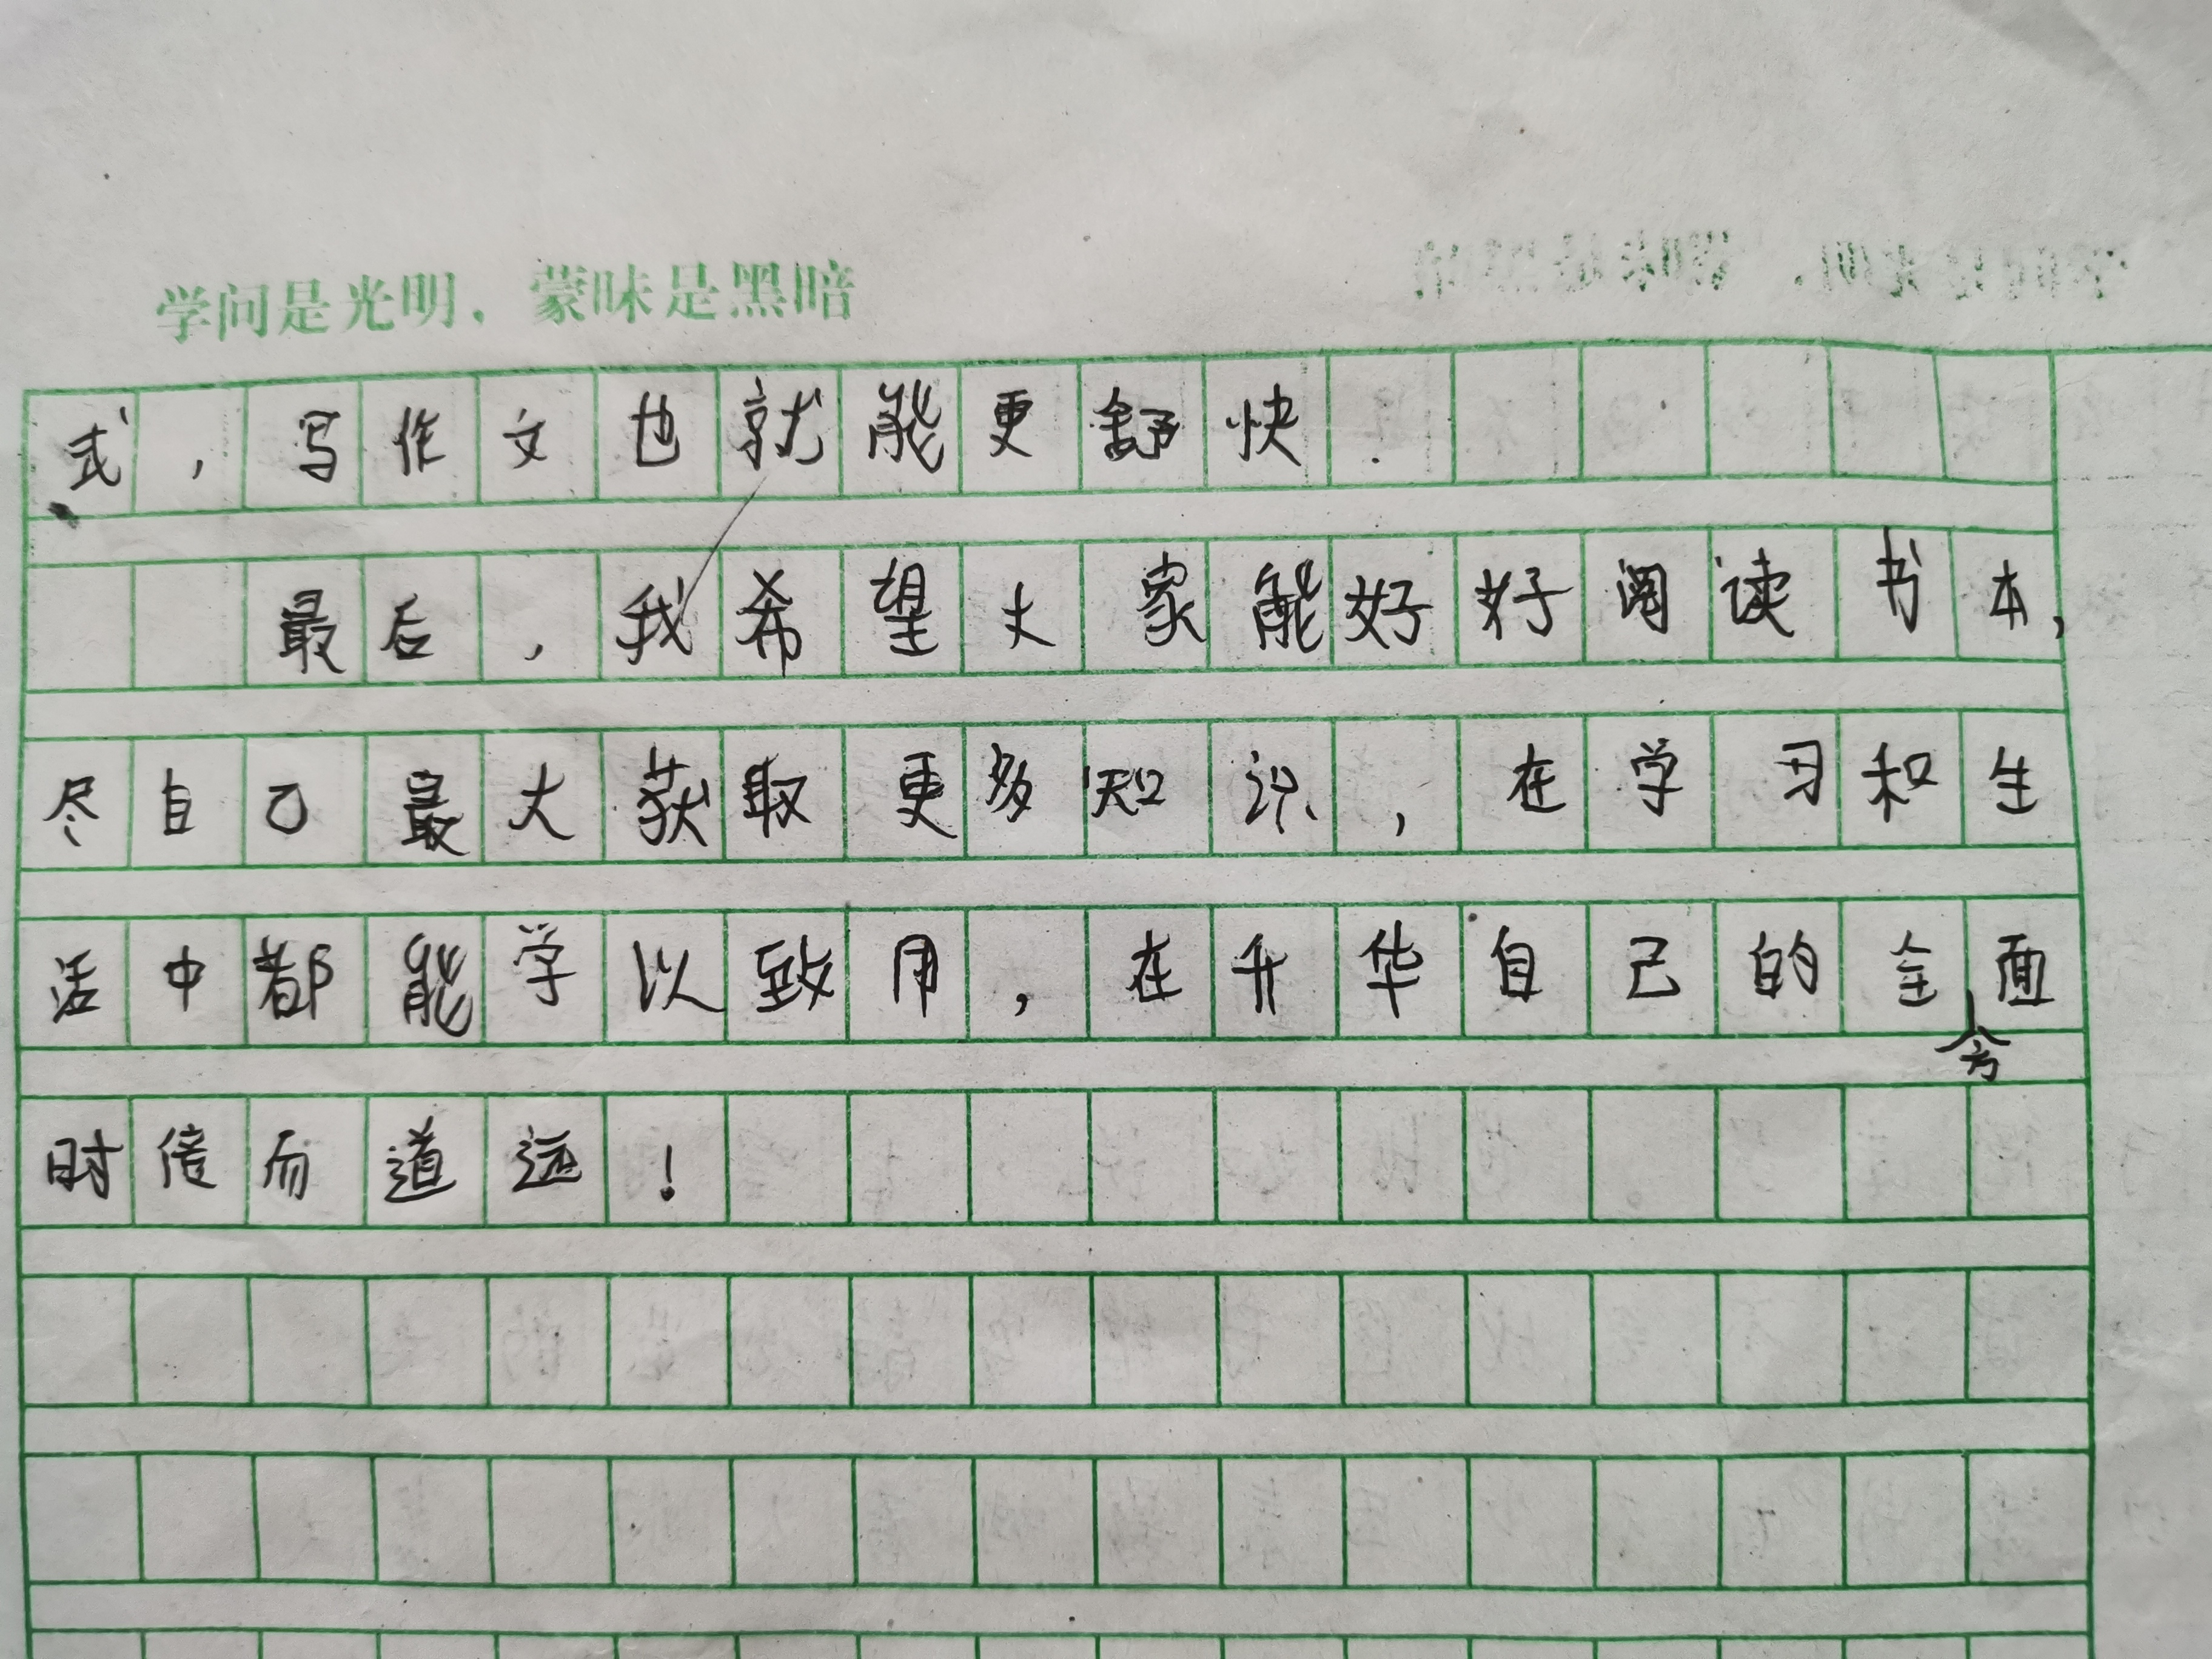 学问是光明，蒙昧是黑暗
式，写作文也就能更舒快.
最后，我希望大家能好好阅读书本，
尽自己最大获取更多知识，在学习和生
活中都能学以致用，在升华自己的全方面
时倍而道远！